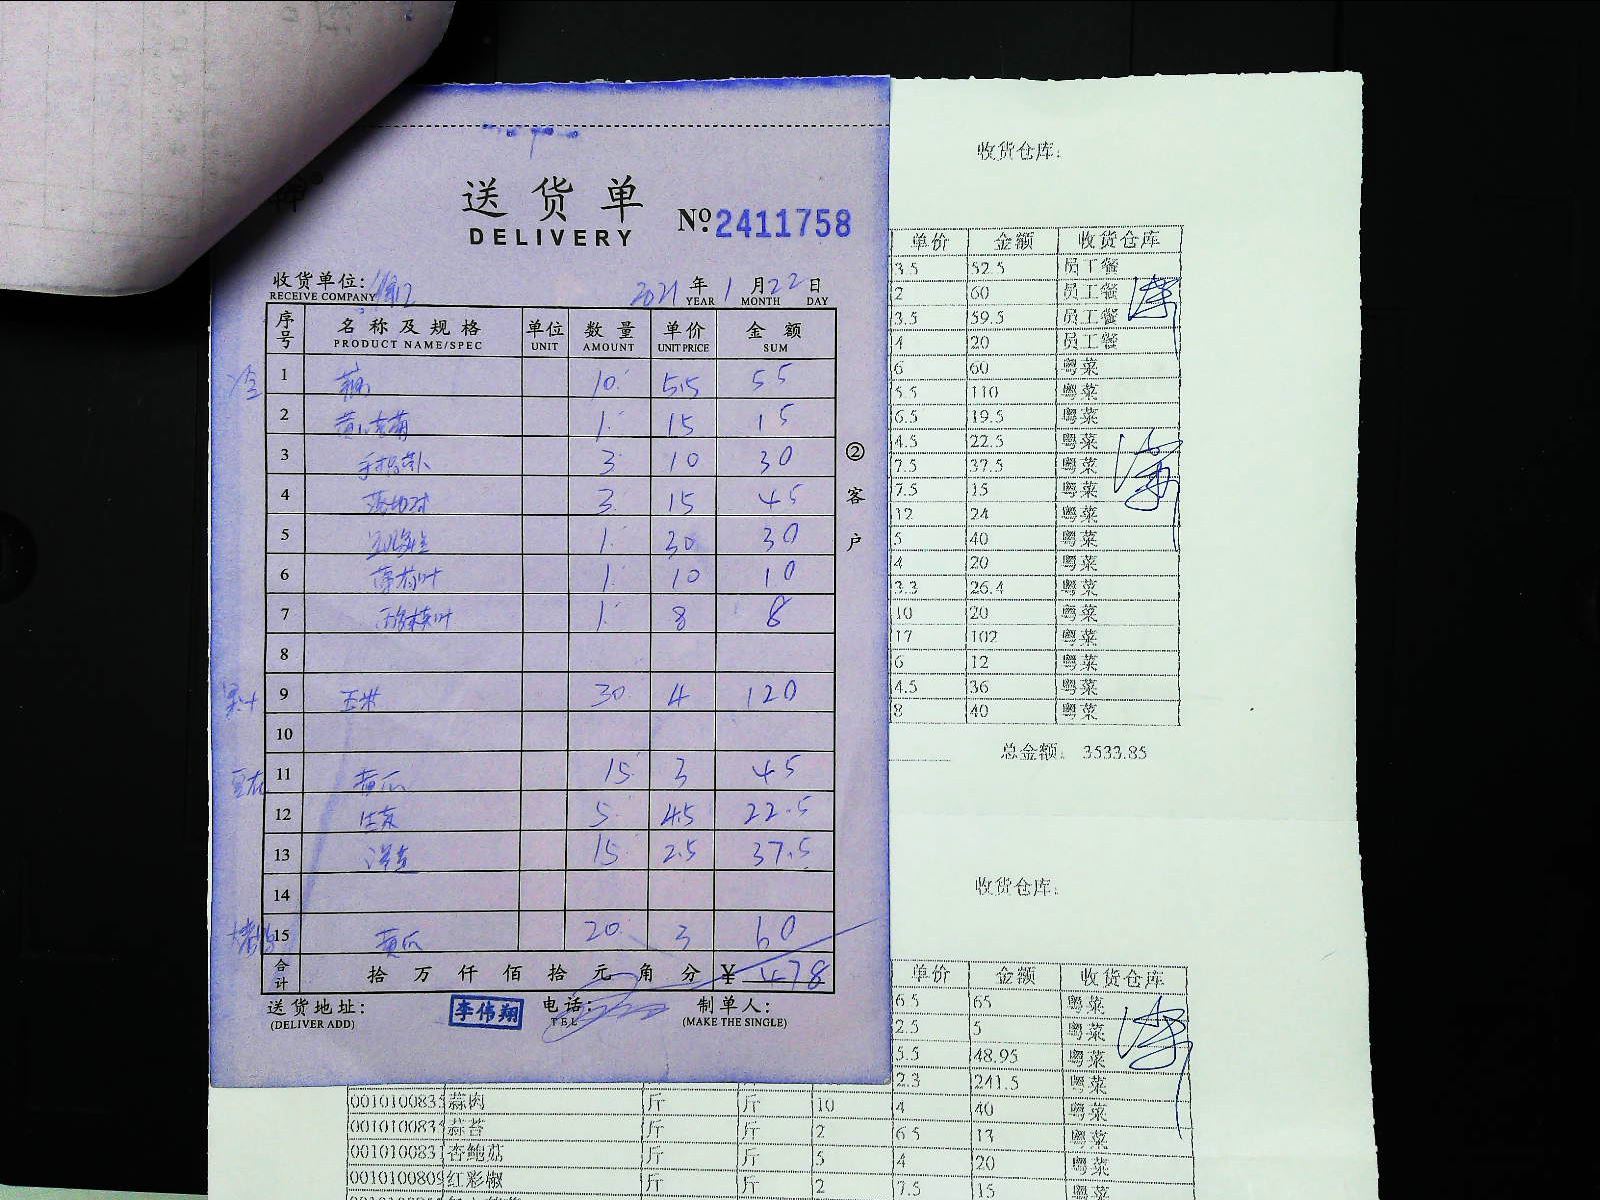 送货单
DELIVERY
№ 2411758
收货单位:
RECEIVE COMPANY
2021 年 1 月 22 日
YEAR MONTH DAY
序号 名称及规格 单位 数量 单价 金额
PRODUCT NAME/SPEC UNIT AMOUNT UNIT PRICE SUM
1 10 5.5 55
2 1 15 15
3 3 10 30
4 3 15 45
5 1 30 30
6 薄荷叶 1 10 10
7 1 8 8
8
9 玉米 30 4 120
10
11 黄瓜 15 3 45
12 生菜 5 4.5 22.5
13 洋葱 15 2.5 37.5
14
15 黄瓜 20 3 60
合计 拾万仟佰拾元角分 ¥ 478
送货地址:
(DELIVER ADD)
李伟翔
电话:
TEL
制单人:
(MAKE THE SINGLE)
②客户
收货仓库:
单价 金额 收货仓库
3.5 52.5 员工餐
2 60 员工餐
3.5 59.5 员工餐
4 20 员工餐
6 60 粤菜
5.5 110 粤菜
6.5 19.5 粤菜
4.5 22.5 粤菜
7.5 37.5 粤菜
7.5 15 粤菜
12 24 粤菜
5 40 粤菜
4 20 粤菜
3.3 26.4 粤菜
10 20 粤菜
17 102 粤菜
6 12 粤菜
4.5 36 粤菜
8 40 粤菜
总金额: 3533.85
收货仓库:
单价 金额 收货仓库
6.5 65 粤菜
2.5 5 粤菜
5.5 48.95 粤菜
2.3 241.5 粤菜
001010083 蒜肉 斤 斤 10 4 40 粤菜
001010083 蒜苔 斤 斤 2 6.5 13 粤菜
001010083 杏鲍菇 斤 斤 5 4 20 粤菜
001010080 红彩椒 斤 斤 2 7.5 15 粤菜